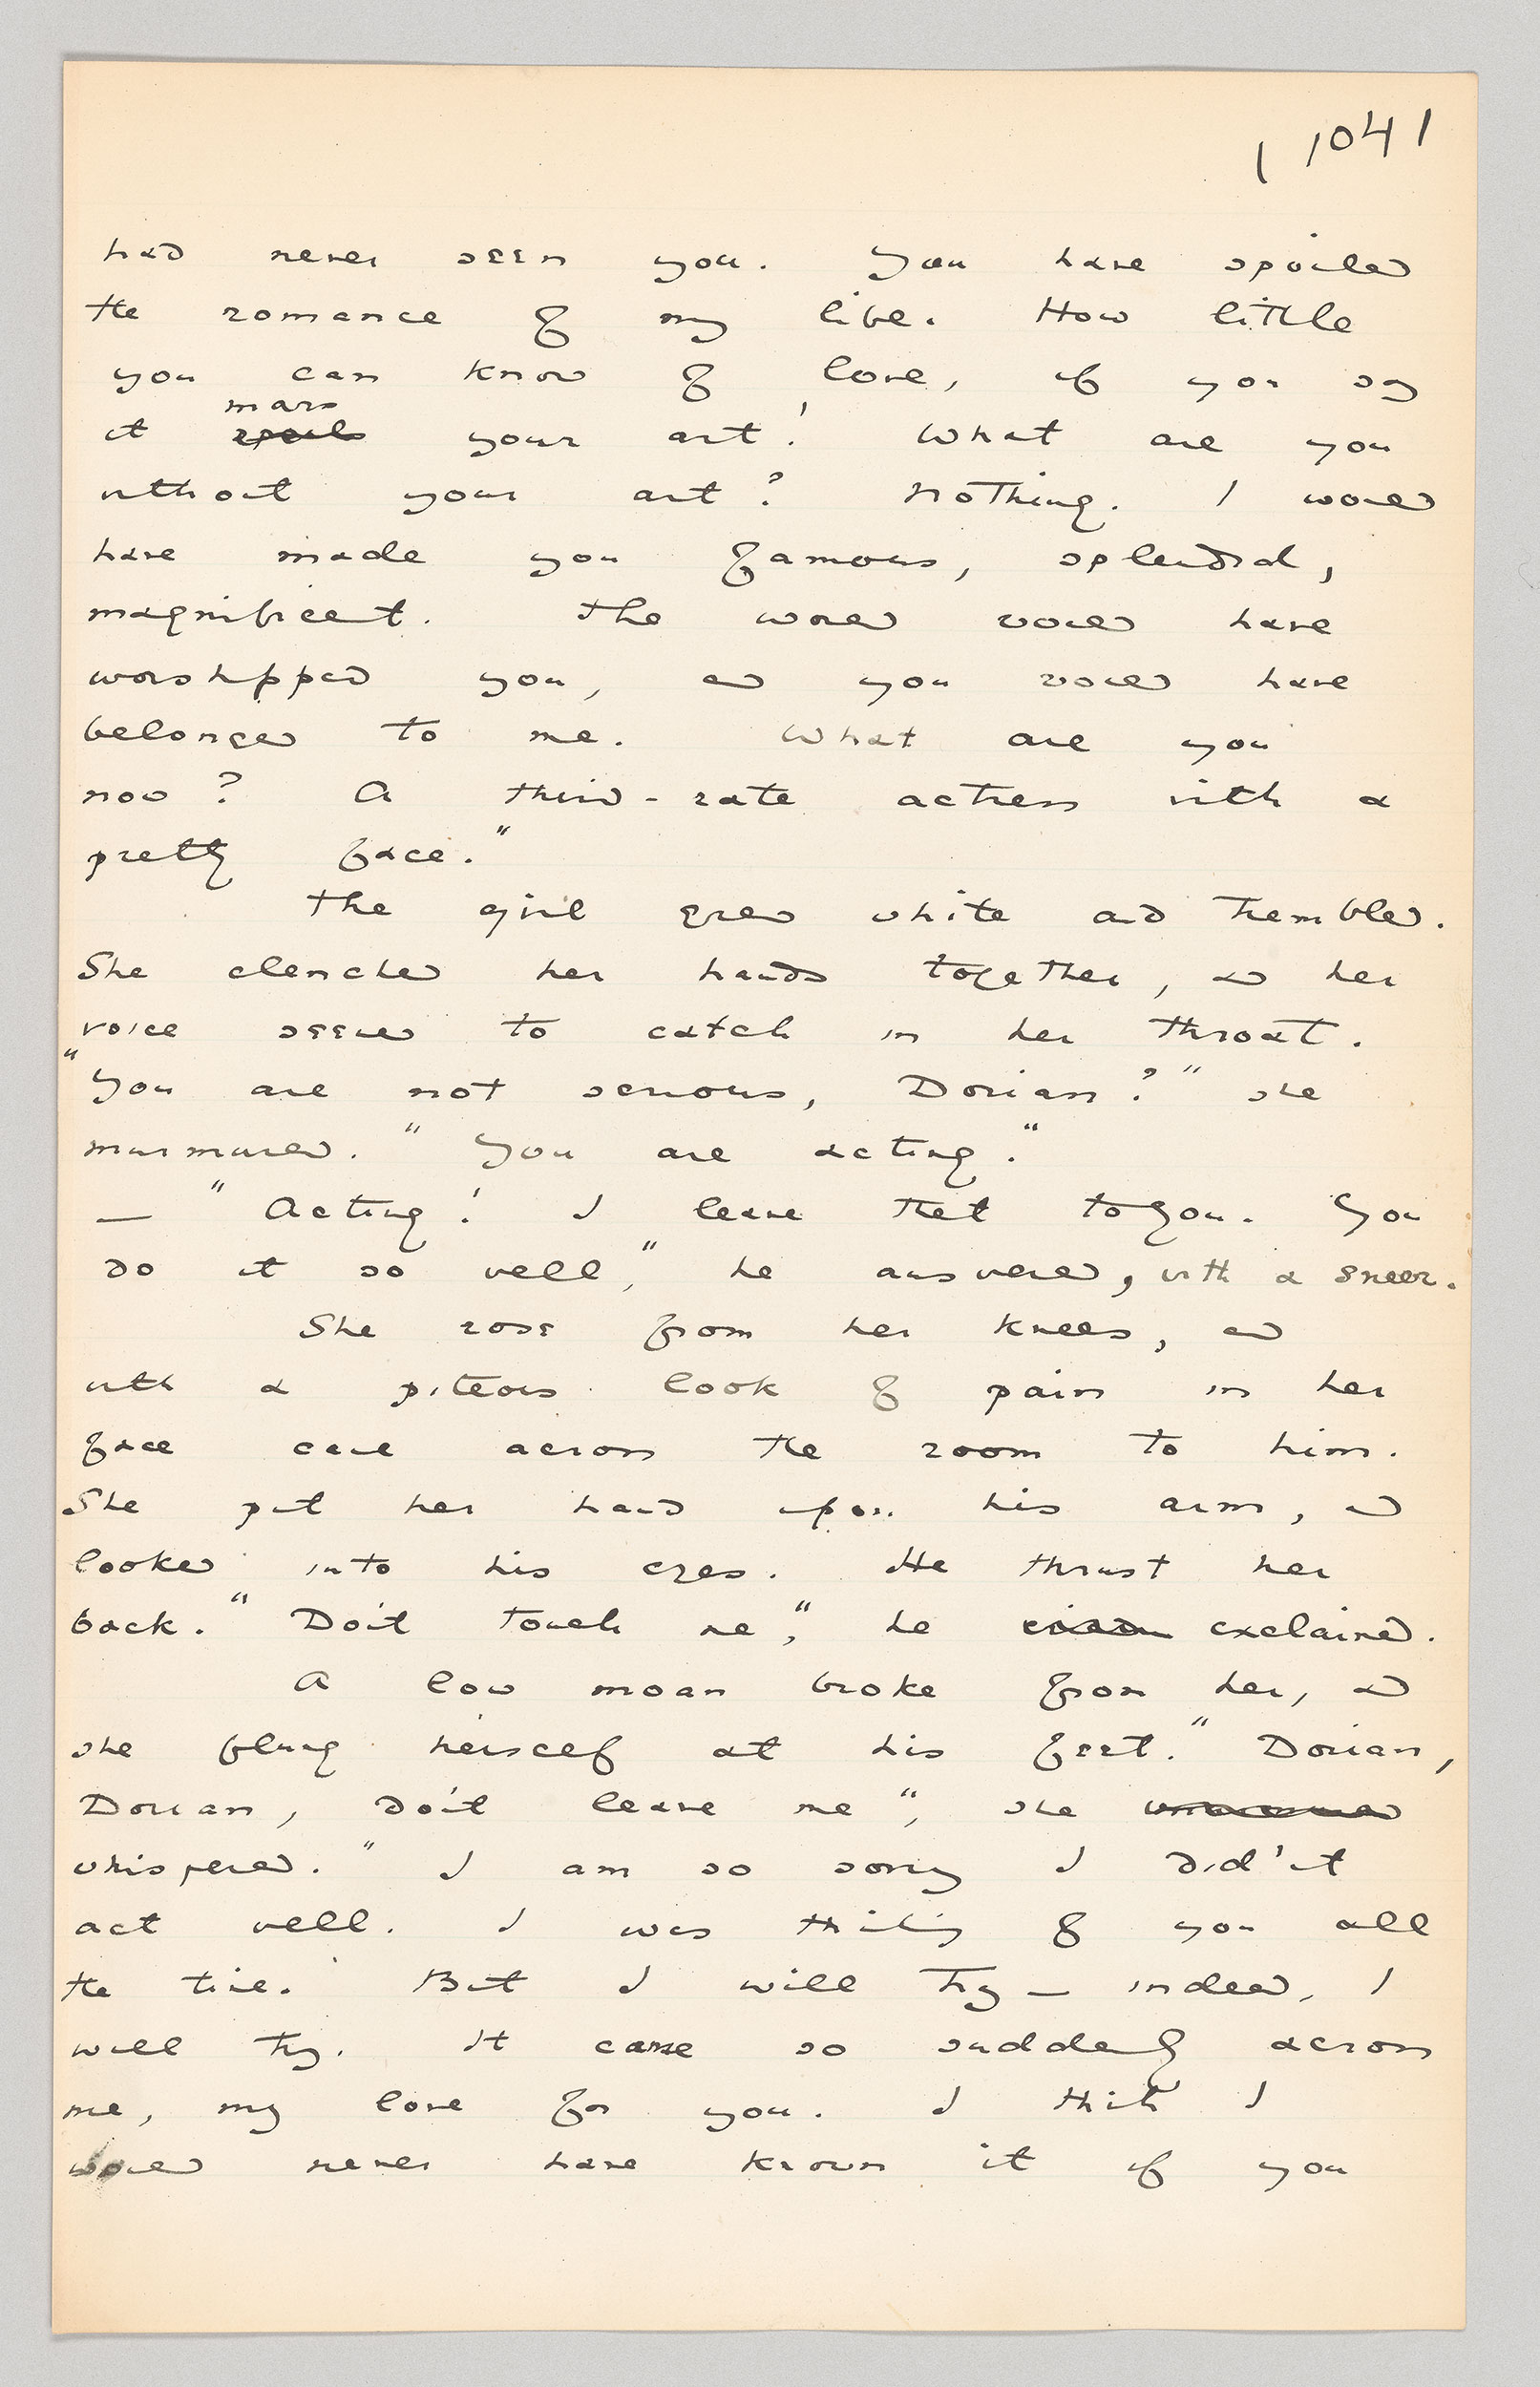 1041
had never seen you. You have spoiled
the romance of my life. How little
you can know of love, if you say
mars
it spoils your art! What are you
without your art? Nothing. I would
have made you famous, splendid,
magnificent. The world would have
worshipped you, and you would have
belonged to me. What are you
now? A third-rate actress with a
pretty face."
The girl grew white and trembled.
She clenched her hands together, and her
voice seemed to catch in her throat.
"You are not serious, Dorian?" she
murmured. "You are acting."
— "Acting! I leave that to you. You
do it so well," he answered, with a sneer.
She rose from her knees, and
with a piteous look of pain in her
face came across the room to him.
She put her hand upon his arm, and
looked into his eyes. He thrust her
back. "Don't touch me," he exclaimed.
A low moan broke from her, and
she flung herself at his feet. "Dorian,
Dorian, don't leave me", she
whispered. "I am so sorry I did'nt
act well. I was thinking of you all
the time. But I will try — indeed, I
will try. It came so suddenly across
me, my love for you. I think I
would never have known it if you